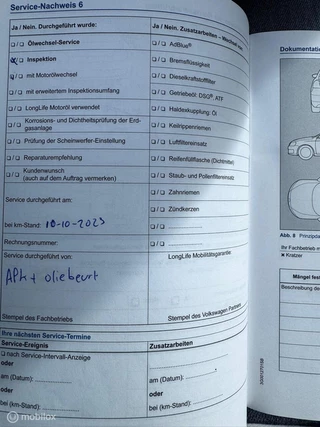 Service-Nachweis 6
Ja / Nein. Durchgeführt wurde:
Ja / Nein. Zusatzarbeiten – Wechsel von
Ölwechsel-Service
AdBlue®
Inspektion
Bremsflüssigkeit
mit Motorölwechsel
Dieselkraftstofffilter
mit erweitertem Inspektionsumfang
Getriebeöl: DSG®, ATF
LongLife Motoröl verwendet
Haldexkupplung: Öl
Korrosions- und Dichtheitsprüfung der Erd-
gasanlage
Keilrippenriemen
Prüfung der Scheinwerfer-Einstellung
Luftfiltereinsatz
Reparaturempfehlung
Reifenfüllflasche (Dichtmittel)
Kundenwunsch
(auch auf dem Auftrag vermerken)
Staub- und Pollenfiltereinsatz
Service durchgeführt am:
Zahnriemen
Zündkerzen
bei km-Stand: 10-10-2023
Rechnungsnummer:
Service durchgeführt von:
LongLife Mobilitätsgarantie:
APK + oliebeurt
Stempel des Fachbetriebs
Stempel des Volkswagen Partners
Ihre nächsten Service-Termine
Service-Ereignis
Zusatzarbeiten
nach Service-Intervall-Anzeige
oder
am (Datum):
am (Datum):
oder
oder
bei (km-Stand):
bei (km-Stand):
Dokumentatio
Abb. 8 Prinzipda
Ihr Fahrzeug ist m
Kratzer
Mängel fest
Beschreibung de
mobilox